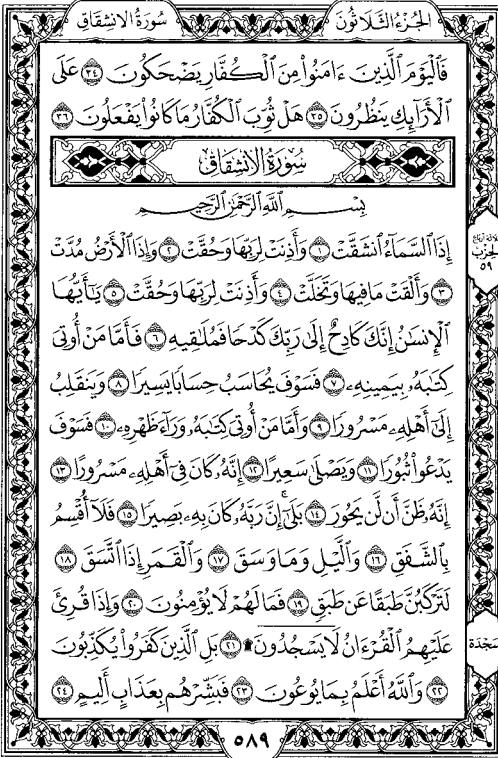 سُورَةُ الانشِقَاقِ الجُزْءُ الثَّلَاثُونَ
فَالْيَوْمَ الَّذِينَ ءَامَنُوا۟ مِنَ الْكُفَّارِ يَضْحَكُونَ ٣٤ عَلَى
الْأَرَآئِكِ يَنظُرُونَ ٣٥ هَلْ ثُوِّبَ الْكُفَّارُ مَا كَانُوا۟ يَفْعَلُونَ ٣٦
سُورَةُ الانشِقَاقِ
بِسْمِ اللَّهِ الرَّحْمَٰنِ الرَّحِيمِ
إِذَا السَّمَآءُ انشَقَّتْ ١ وَأَذِنَتْ لِرَبِّهَا وَحُقَّتْ ٢ وَإِذَا الْأَرْضُ مُدَّتْ
٣ وَأَلْقَتْ مَا فِيهَا وَتَخَلَّتْ ٤ وَأَذِنَتْ لِرَبِّهَا وَحُقَّتْ ٥ يَٰٓأَيُّهَا
الْإِنسَٰنُ إِنَّكَ كَادِحٌ إِلَىٰ رَبِّكَ كَدْحًا فَمُلَٰقِيهِ ٦ فَأَمَّا مَنْ أُوتِىَ
كِتَٰبَهُۥ بِيَمِينِهِۦ ٧ فَسَوْفَ يُحَاسَبُ حِسَابًا يَسِيرًا ٨ وَيَنقَلِبُ
إِلَىٰٓ أَهْلِهِۦ مَسْرُورًا ٩ وَأَمَّا مَنْ أُوتِىَ كِتَٰبَهُۥ وَرَآءَ ظَهْرِهِۦ ١٠ فَسَوْفَ
يَدْعُوا۟ ثُبُورًا ١١ وَيَصْلَىٰ سَعِيرًا ١٢ إِنَّهُۥ كَانَ فِىٓ أَهْلِهِۦ مَسْرُورًا ١٣
إِنَّهُۥ ظَنَّ أَن لَّن يَحُورَ ١٤ بَلَىٰٓ إِنَّ رَبَّهُۥ كَانَ بِهِۦ بَصِيرًا ١٥ فَلَآ أُقْسِمُ
بِالشَّفَقِ ١٦ وَالَّيْلِ وَمَا وَسَقَ ١٧ وَالْقَمَرِ إِذَا اتَّسَقَ ١٨
لَتَرْكَبُنَّ طَبَقًا عَن طَبَقٍ ١٩ فَمَا لَهُمْ لَا يُؤْمِنُونَ ٢٠ وَإِذَا قُرِئَ
عَلَيْهِمُ الْقُرْءَانُ لَا يَسْجُدُونَ ۩ ٢١ بَلِ الَّذِينَ كَفَرُوا۟ يُكَذِّبُونَ
٢٢ وَاللَّهُ أَعْلَمُ بِمَا يُوعُونَ ٢٣ فَبَشِّرْهُم بِعَذَابٍ أَلِيمٍ ٢٤
ثلاثة أرباع
الحزب
٥٩
سَجدَة
٥٨٩